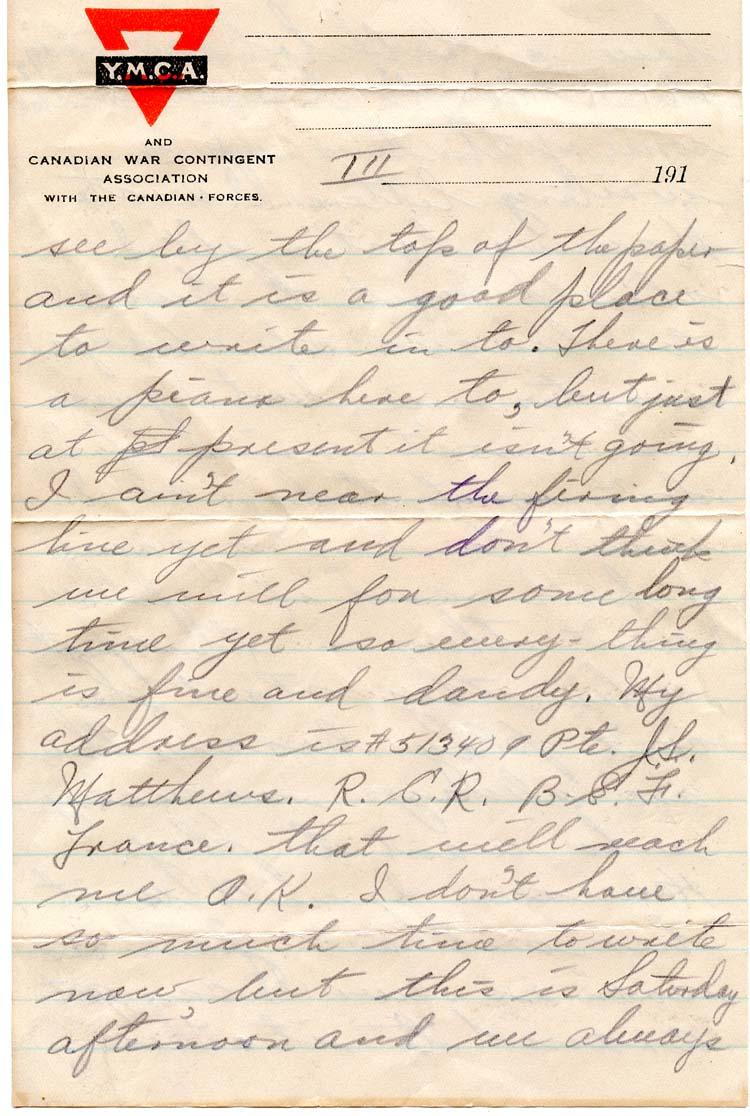 Y.M.C.A.
AND
CANADIAN WAR CONTINGENT
ASSOCIATION
WITH THE CANADIAN · FORCES.
III
191
see by the top of the paper
and it is a good place
to write in to. There is
a piano here to, but just
at present it isn't going.
I ain't near the firing
line yet and don't think
we will for some long
time yet so every-thing
is fine and dandy. My
address is #513409 Pte. J.L.
Matthews. R.C.R. B.E.F.
France. that will reach
me O.K. I don't have
so much time to write
now, but this is Saturday
afternoon and we always